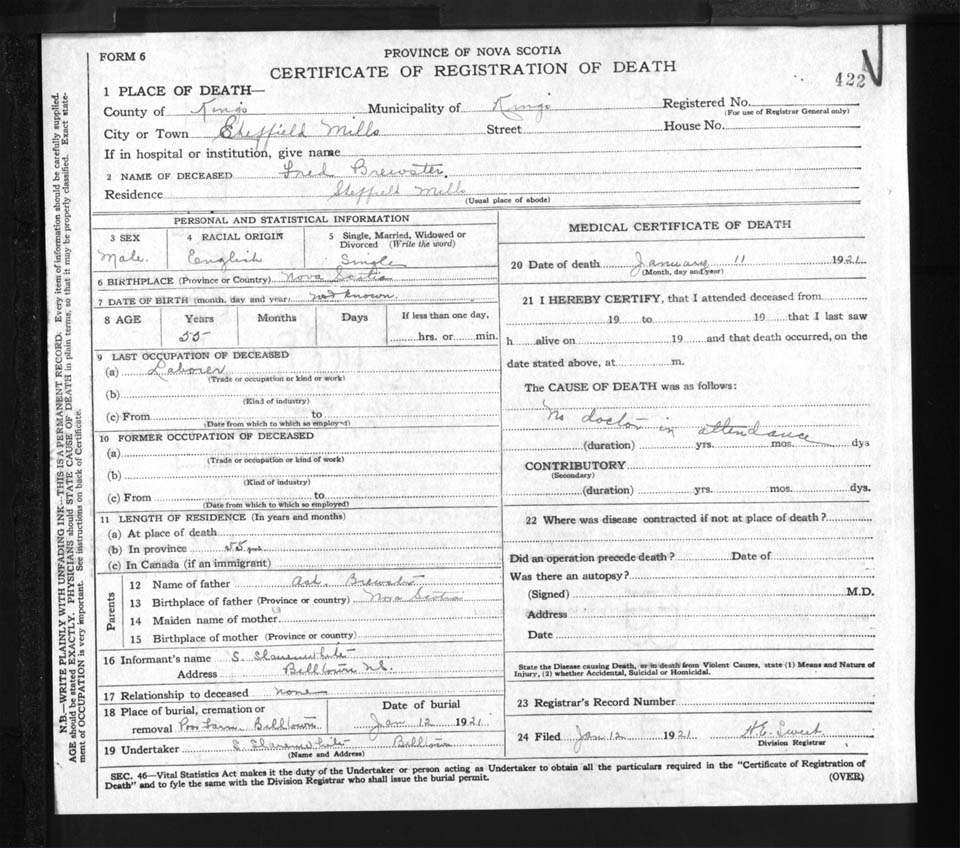 FORM 6
PROVINCE OF NOVA SCOTIA
CERTIFICATE OF REGISTRATION OF DEATH
422
1 PLACE OF DEATH—
County of Kings Municipality of Kings Registered No.
(For use of Registrar General only)
City or Town Sheffield Mills Street House No.
If in hospital or institution, give name
2 NAME OF DECEASED Fred Brewster
Residence Sheffield Mills
(Usual place of abode)
PERSONAL AND STATISTICAL INFORMATION
3 SEX 4 RACIAL ORIGIN 5 Single, Married, Widowed or
Divorced (Write the word)
Male. English Single
6 BIRTHPLACE (Province or Country) Nova Scotia
7 DATE OF BIRTH (month, day and year) not known.
8 AGE Years Months Days If less than one day,
55 hrs. or min.
9 LAST OCCUPATION OF DECEASED
(a) Laborer
(Trade or occupation or kind or work)
(b)
(Kind of industry)
(c) From to
(Date from which to which so employed)
10 FORMER OCCUPATION OF DECEASED
(a)
(Trade or occupation or kind of work)
(b)
(Kind of industry)
(c) From to
(Date from which to which so employed)
11 LENGTH OF RESIDENCE (In years and months)
(a) At place of death
(b) In province 55 yrs
(c) In Canada (if an immigrant)
Parents
12 Name of father Brewster
13 Birthplace of father (Province or country) Nova Scotia
14 Maiden name of mother
15 Birthplace of mother (Province or country)
16 Informant's name S. Slauenwhite
Address Billtown N.S.
17 Relationship to deceased none
18 Place of burial, cremation or Date of burial
removal Poor Farm Billtown Jan 12 1921
19 Undertaker S. Slauenwhite Billtown
(Name and Address)
MEDICAL CERTIFICATE OF DEATH
20 Date of death January 11 1921
(Month, day and year)
21 I HEREBY CERTIFY, that I attended deceased from
19 to 19 that I last saw
h alive on 19 and that death occurred, on the
date stated above, at m.
The CAUSE OF DEATH was as follows:
No doctor in attendance
(duration) yrs. mos. dys
CONTRIBUTORY
(Secondary)
(duration) yrs. mos. dys.
22 Where was disease contracted if not at place of death?
Did an operation precede death? Date of
Was there an autopsy?
(Signed) M.D.
Address
Date
State the Disease causing Death, or in death from Violent Causes, state (1) Means and Nature of
Injury, (2) whether Accidental, Suicidal or Homicidal.
23 Registrar's Record Number
24 Filed Jan 12 1921 Sweet
Division Registrar
SEC. 46—Vital Statistics Act makes it the duty of the Undertaker or person acting as Undertaker to obtain all the particulars required in the "Certificate of Registration of
Death" and to fyle the same with the Division Registrar who shall issue the burial permit. (OVER)
N.B.—WRITE PLAINLY WITH UNFADING INK—THIS IS A PERMANENT RECORD. Every item of information should be carefully supplied.
AGE should be stated EXACTLY. PHYSICIANS should STATE CAUSE OF DEATH in plain terms, so that it may be properly classified. Exact state-
ment of OCCUPATION is very important. See instructions on back of Certificate.